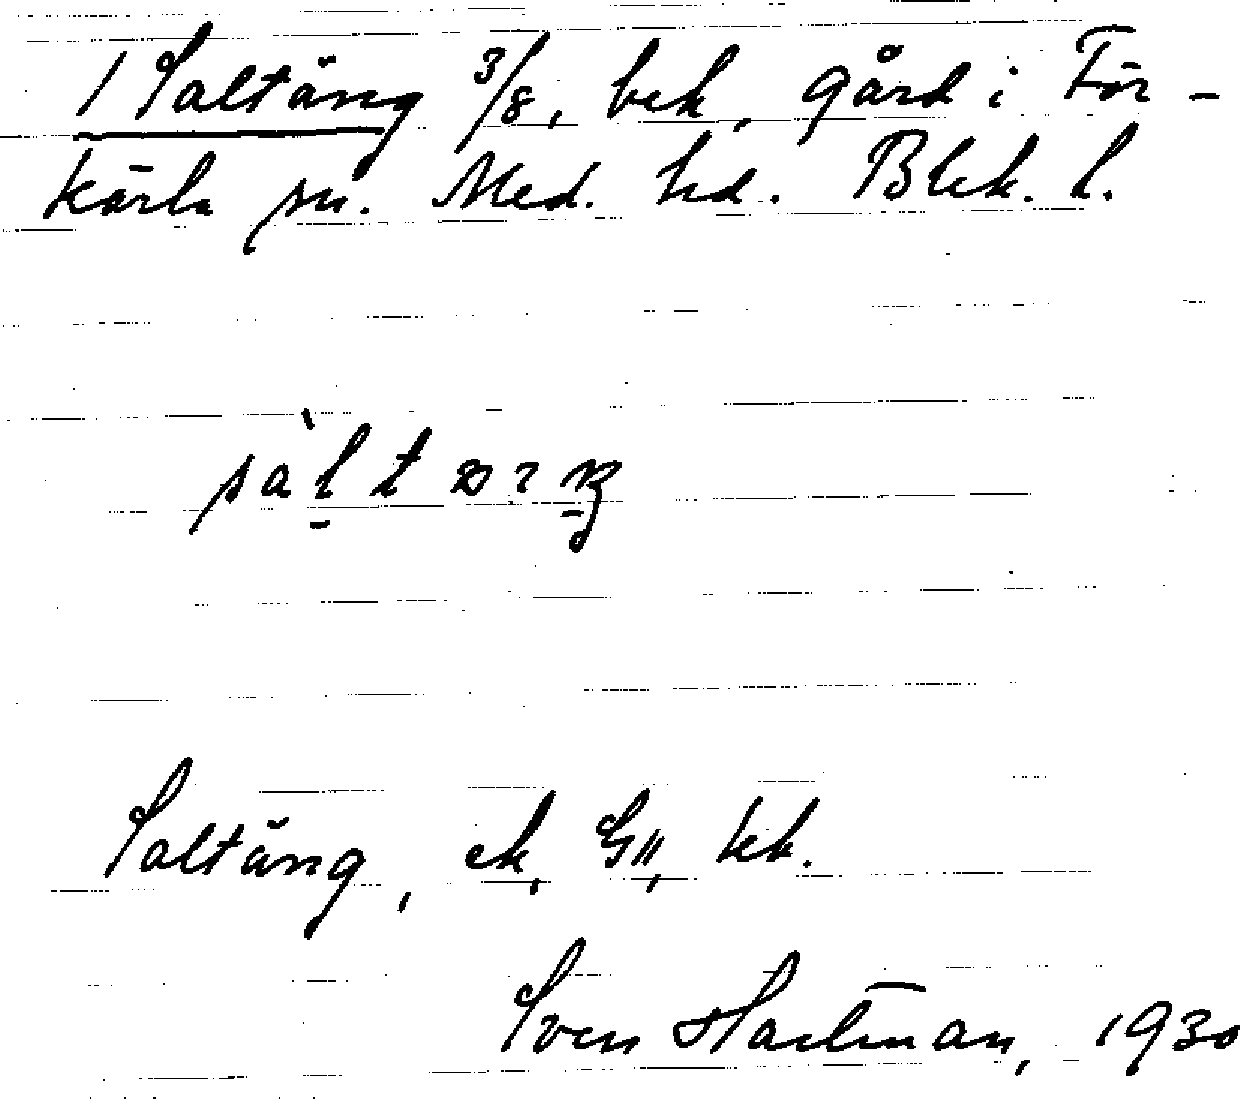 1 Saltäng 3/8, bek, gård i För-
kärla sn. Med. hd. Blek. l.
Saltäng, ek, GII, kk.
Sven Hartman, 1930